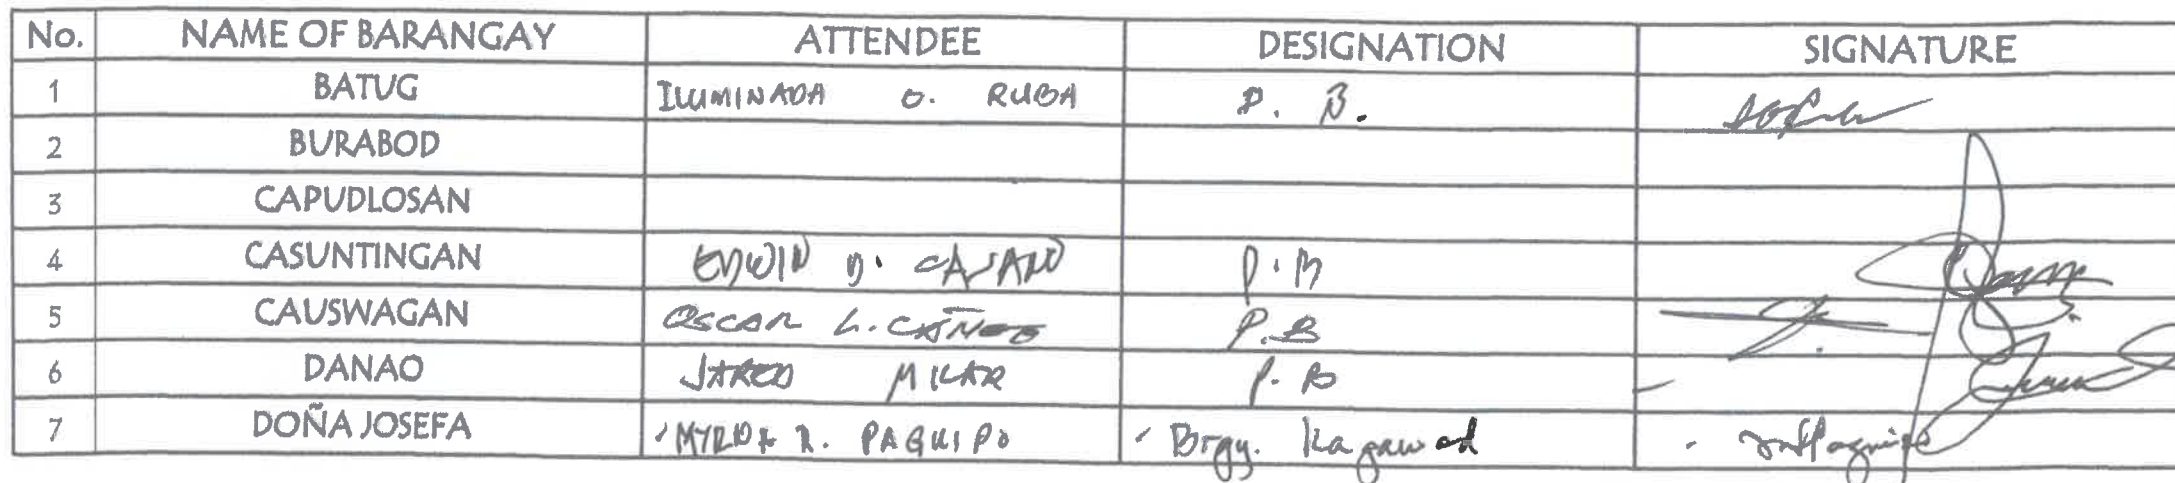 No. NAME OF BARANGAY ATTENDEE DESIGNATION SIGNATURE
1 BATUG ILUMINADA O. RUBA P. B.
2 BURABOD
3 CAPUDLOSAN
4 CASUNTINGAN EDWIN D. P.B
5 CAUSWAGAN OSCAR L. P.B
6 DANAO JARED MILAR P.B
7 DOÑA JOSEFA R. PAGUIPO Brgy. Kagawad